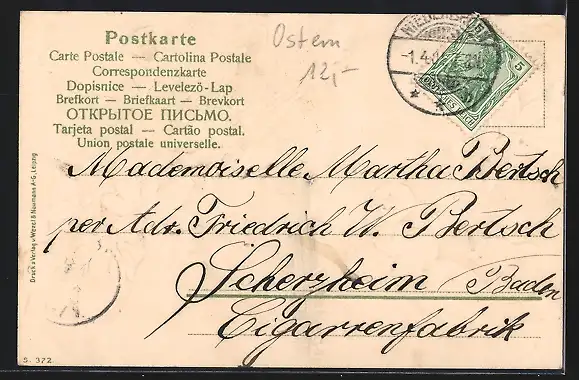 Postkarte
Carte Postale — Cartolina Postale
Correspondenzkarte
Dopisnice — Levelező-Lap
Brefkort — Briefkaart — Brevkort
ОТКРЫТОЕ ПИСЬМО.
Tarjeta postal — Cartão postal.
Union postale universelle.
Ostern
12,-
5
Mademoiselle Martha Bertsch
per Adr. Friedrich W. Bertsch
Scherzheim (Baden
Cigarrenfabrik
Druck u Verlag v Wezel & Naumann A-G, Leipzig
S. 372